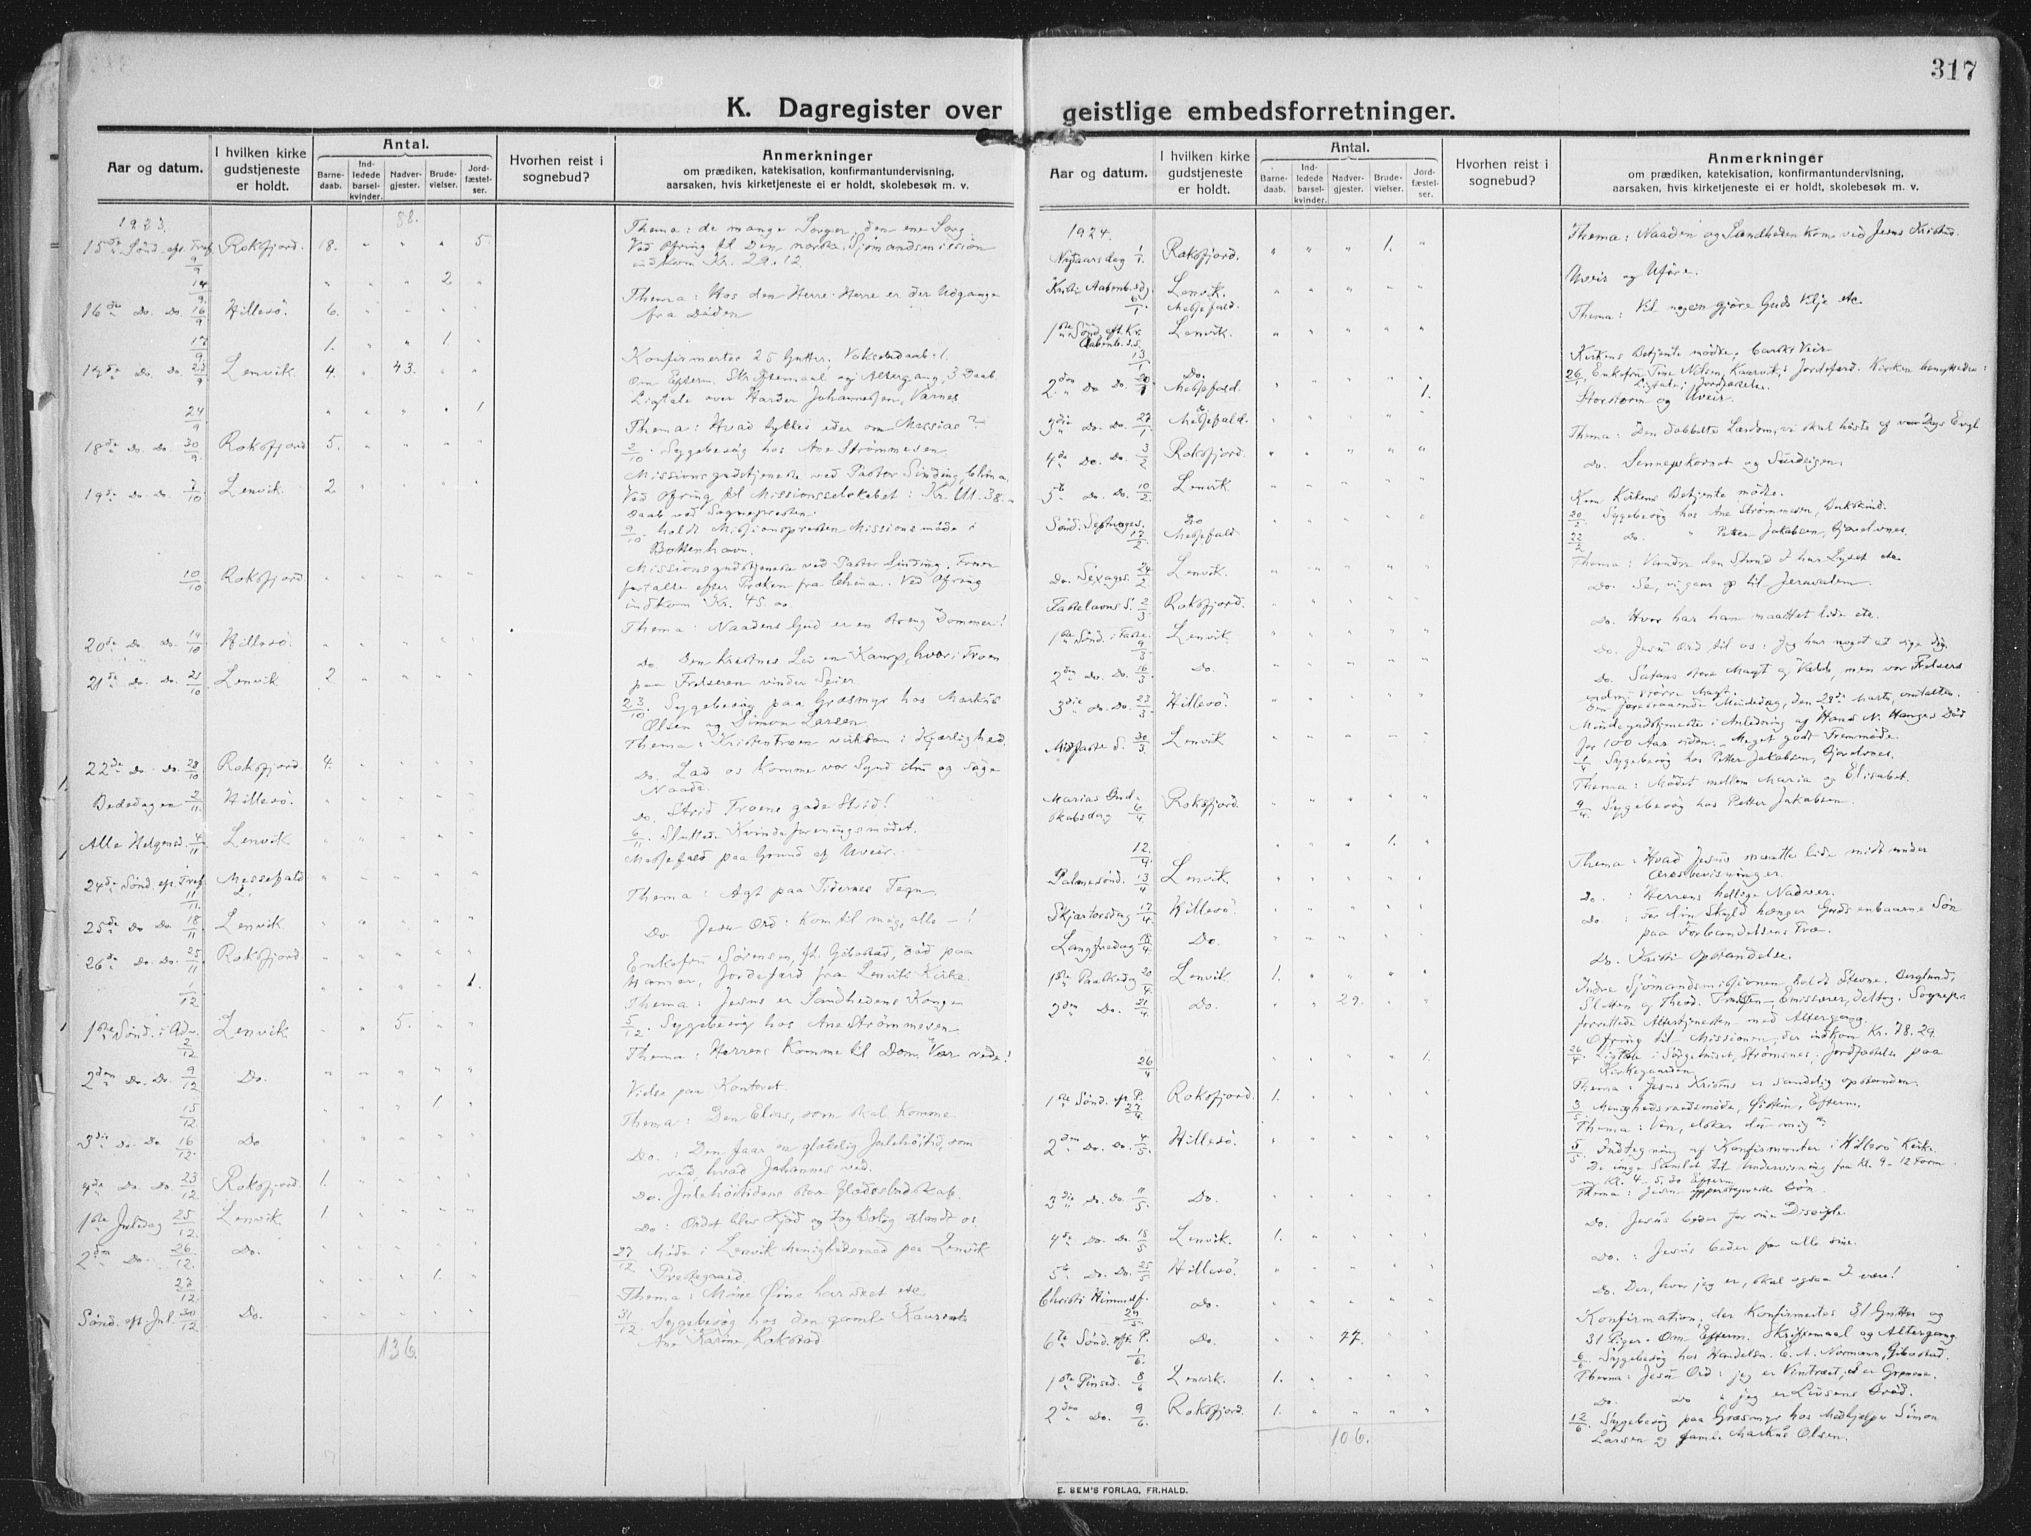 317
K. Dagregister over geistlige embedsforretninger.
Aar og datum.
I hvilken kirke gudstjeneste er holdt.
Antal.
Barne-daab.
Ind-ledede barsel-kvinder.
Nadver-gjester.
Brude-vielser.
Jord-fæstel-ser.
Hvorhen reist i sognebud?
Anmerkninger
om prædiken, katekisation, konfirmantundervisning,
aarsaken, hvis kirketjeneste ei er holdt, skolebesøk m. v.
1923. 88.
Thema: de mange Sorger, den ene Sorg.
15de Sönd. eft. Tref. 9/9 Roksfjord. 18. " " " 5.
Ved Ofring til Den norske Sjömandsmission
indkom Kr. 29.12
14/9 " " " 2 "
Thema: Hos den Herre Herre er der Udgange
fra Döden
16de Do. Do. 16/9 Hillesö. 6. " " " "
17/9 1. " " 1 "
Konfirmertes 25 Gutter. Voksendaab: 1.
17de Do. Do. 23/9 Lenvik. 4. " 43. " "
Om Efterm. Skriftemaal og Altergang, 3 Daab.
Ligtale over Harder Johannessen, Varnes
24/9 " " " " 1
Thema: Hvad tykkes eder om Messias?
18de Do. Do. 30/9 Roksfjord 5. " " " "
2/10. Sygebesög hos Ane Strömmesen.
Missionsgudstjeneste ved Pastor Sinding, China.
19de Do. Do. 7/10 Lenvik 2 " " " "
Ved Ofring til Missionsselskabet: Kr. 38.
Daab ved Sognepresten.
9/10. holdt Missionspresten Missionsmöde i
Bottenhavn.
Missionsgudstjeneste ved Pastor Sinding.
10/10 Roksfjord " " " " "
fortalte efter Præken fra China. Ved Ofring
indkom Kr. 45.00
Thema: Naadens Gud er en streng Dommer!
20de Do. Do. 14/10 Hillesö. " " " " "
Do. Den kristnes Liv en Kamp, hvor i Troen
paa Frelseren vinder Seier.
21de Do. Do. 21/10 Lenvik 2 " " " "
23/10 Sygebesög paa Græsmyr hos Markus
Olsen og Simon Larsen
Thema: Kristentroen virksom i Kjærlighed.
22de Do. Do. 28/10 Roksfjord 4. " " " "
Do. Lad os komme vor Synd ihu og söge
Naade.
Bededagen 2/11. Hillesö. " " " " "
Do. Strid Troens gode Strid!
6/11. Sluttede Kvindeforeningsmödet.
Alle Helgensd. 4/11 Lenvik. " " " " "
Messefald paa Grund af Uveir.
24de Sönd. eft. Tref. 11/11. Messefald " " " " "
Thema: Agt paa Tidernes Tegn.
25de Do Do 18/11 Lenvik " " " " "
Do. Jesu Ord: Kom til mig, alle —!
26de Do. Do. 25/11 Roksfjord " " " " "
Enkefru Sörensen, f. Gibostad, död paa
Hamar, Jordefærd fra Lenviks Kirke
1/12 " " " " 1.
Thema: Jesus er Sandhedens Konge
1ste Sönd. i Adv. 2/12 Lenvik " " 5. " "
5/12. Sygebesög hos Ane Strömmesen
Thema: Herrens Komme til Dom. Vær rede!
2den Do. Do. 9/12 Do. " " " " "
Vielse paa Kontoret.
15/12 " " " 1. "
Thema: Den Elias, som skal komme
3die Do. Do 16/12. Do " " " " "
Do.: Den faar en glædelig Julehöitid, som
ved, hvad Johannes ved.
4de Do. Do. 23/12 Roksfjord 1. " " " "
Do. Julehöitidens store Glædesbudskab.
1ste Juledag 25/12. Lenvik 1 " " " "
Do.: Ordet blev Kjöd og tog Bolig iblandt os.
2den Do. 26/12. Do. " " " " "
27/12 Möde i Lenvik Menighedsraad paa Lenvik
Prestegaard.
27/12. " " " 1. "
Thema: Mine Öine har seet etc.
Sönd. eft. Jul. 30/12 Do. " " " " "
31/12 Sygebesög hos den gamle
Ane Karine, Rokstad
136.
Aar og datum.
I hvilken kirke gudstjeneste er holdt.
Antal.
Barne-daab.
Ind-ledede barsel-kvinder.
Nadver-gjester.
Brude-vielser.
Jord-fæstel-ser.
Hvorhen reist i sognebud?
Anmerkninger
om prædiken, katekisation, konfirmantundervisning,
aarsaken, hvis kirketjeneste ei er holdt, skolebesøk m. v.
1924.
Nytaarsdag 1/1. Roksfjord. " " " 1. "
Thema: Naaden og Sandheden kom ved Jesus Kristus.
Kristi Aabenb.sdg 6/1. Lenvik. Messefald. " " " " "
Uveir og Uföre.
1ste Sönd. eft. Kr. Aabenb.s. 13/1 Lenvik. " " " " "
Thema: Vil nogen gjöre Guds Vilje etc.
2den Do. Do. 20/1 Do. Messefald. " " " " 1.
Kirkens Betjente mödte. barskt Veir
26/1. Enkefru Tine Nilsen, Kaarvik, Jordefærd. Kirken benyttedes:
Ligtale, Jordfæstelse.
3die Do. Do. 27/1. Messefald. " " " " "
Storstorm og Uveir.
4de Do. Do. 3/2 Roksfjord. " " " " "
Thema: Den dobbelte Lærdom, vi skal höste af vor Dags Evgl
5te Do. Do. 10/2. Lenvik. " " " " "
do. Sennepskornet og Surdeigen.
Sönd. Septuages. 17/2 Do Messefald " " " " "
Kun Kirkens Betjente mödte.
20/2. Sygebesög hos Ane Strömmesen, Bukskind.
22/2 do. " Petter Jakobsen, Gjevelvnes.
Do. Sexages. 24/2 Lenvik. " " " " "
Thema: Vandre den Stund I har Lyset etc
Fastelavns S. 2/3. Roksfjord. " " " " "
Do. Se, vi gaar op til Jerusalem.
1ste Sönd. i Faste. 9/3 Lenvik. " " " " "
Do. Hvor har han maattet lide etc.
2den Do. Do. 16/3. Do. " " " " "
Do. Jesu Ord til os: Jeg har noget at sige dig.
3die Do. Do. 23/3. Hillesö. " " " " "
Do. Satans store Magt og Vælde, men vor Frelsers
endnu större Magt.
Den forestaaende Mindedag, den 29de Marts, omtaltes.
Midfaste S. 30/3. Lenvik " " " " "
Mindegudstjeneste i Anledning af Hans N. Hauges Död
for 100 Aar siden. Meget godt Fremmöde.
1/4 Sygebesög hos Petter Jakobsen, Gjevelvnes.
Marias Bud-skabsdag 6/4 Roksfjord. " " " " "
Thema: Mödet mellem Maria og Elisabet.
9/4. Sygebesög hos Petter Jakobsen.
12/4. " " " 1. "
Palmesönd. 13/4 Lenvik. " " " " "
Thema: Hvad Jesus maatte lide midt under
Æresbevisninger.
Skjærtorsdag 17/4. Hillesö. " " " " "
Do.: Herrens hellige Nadver.
Langfredag 18/4. Do. " " " " "
do.: For din Skyld hænger Guds enbaarne Sön
paa Forbandelsens Træ.
1ste Paaskedg 20/4. Lenvik. 1. " " " "
Do. Kristi Opstandelse.
2den Do. 21/4. Do. " " 29. " "
Indre Sjömandsmissionen holdt Stevne. Berglund,
Sletten og Theod. Emissærer, deltog. Sognepr.
forrettede Altertjenesten med Altergang.
Ofring til Missionen, der indkom Kr. 78.29.
26/4 " " " " 1.
26/4. Ligtale i Sörgehuset, Strömsnes. Jordfæstelse paa
Kirkegaarden
1ste Sönd. eft. P. 27/4 Roksfjord. 1. " " " "
Thema: Jesus Kristus er sandelig opstanden.
3/5 Menighedsraadsmöde, Efterm.
2den Do. Do. 4/5. Hillesö. " " " " "
Thema: Ven, elsker du mig?
5/5 Indtegning af Konfirmanter i Hillesö Kirke.
De unge samlet til Undervisning fra Kl. 9–12 Form
og Kl. 4–5.30 Efterm.
3die Do. Do. 11/5. Do. " " " " "
Thema: Jesus
4de Do. Do. 18/5 Lenvik. 1. " " " "
Do. Jesus beder for sine Disciple.
5te Do. Do. 25/5 Hillesö. " " " " "
Do.: Jesus beder for alle sine.
Christi Himmelf. 29/5. Do. " " " " "
Do. Der, hvor jeg er, skal ogsaa I være!
6te Sönd. eft. P. 1/6. Do. " " 77. " "
Konfirmation; der Konfirmertes 31 Gutter og
31 Piger. Om Efterm. Skriftemaal og Altergang
6/6 Sygebesög hos Handelsm. E. A. Normann, Gibostad.
1ste Pinsed. 8/6 Lenvik. 1. " " " "
Thema: Jesu Ord: jeg er Vintræet, I er Grenene.
2den Do. 9/6. Roksfjord. 1. " " " "
Do. Do " jeg er Livsens Bröd.
12/6 Sygebesög paa Græsmyr hos Medhjelper Simon
Larsen og gamle Markus Olsen.
106.
E. SEM'S FORLAG, FR.HALD.